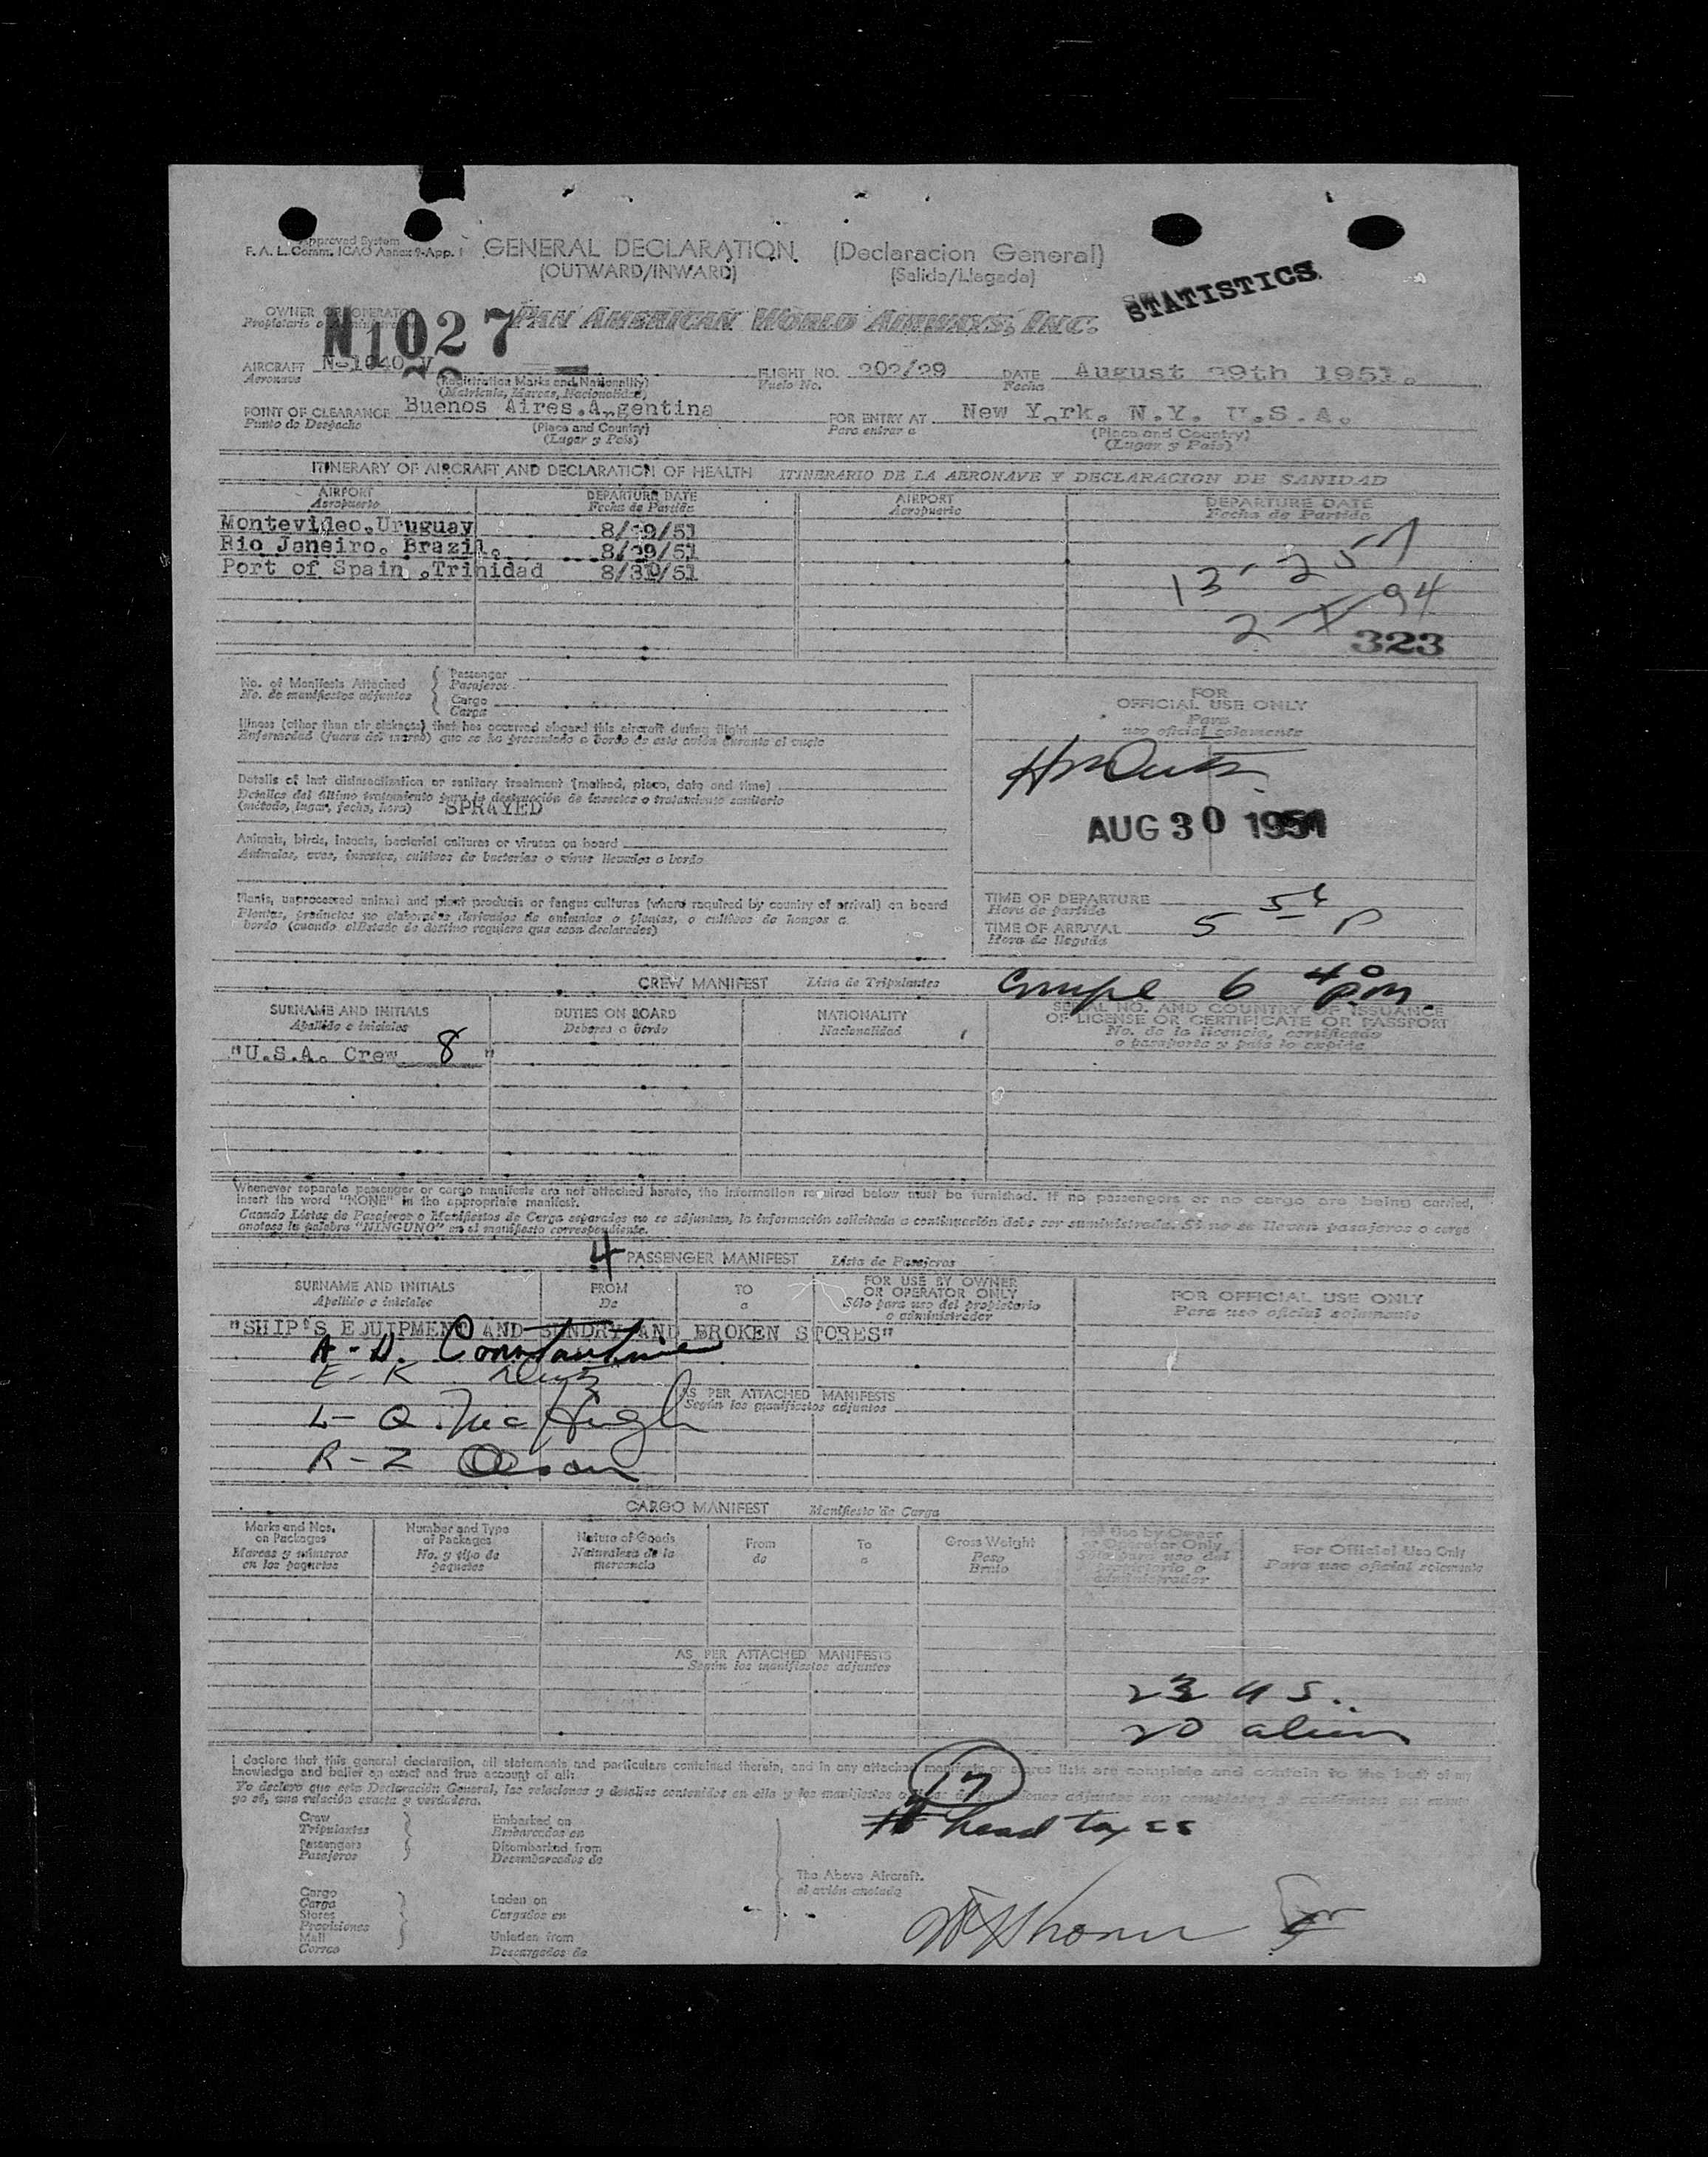 Approved System
F. A. L. Comm. ICAO Annex 9-App. 1
GENERAL DECLARATION (Declaracion General)
(OUTWARD/INWARD) (Salida/Llegada)
STATISTICS
OWNER OR OPERATOR
Propietario o
N1027
PAN AMERICAN WORLD AIRWAYS, INC.
AIRCRAFT N-1040 V FLIGHT NO. 202/29 DATE August 29th 1951.
Aeronave (Registration Marks and Nationality) Vuelo No. Fecha
(Matricula, Marcas, Nacionalidad)
POINT OF CLEARANCE Buenos Aires.Argentina FOR ENTRY AT New York. N.Y. U.S.A.
Punto de Despacho (Place and Country) Para entrar a (Place and Country)
(Lugar y Pais) (Lugar y Pais)
ITINERARY OF AIRCRAFT AND DECLARATION OF HEALTH ITINERARIO DE LA AERONAVE Y DECLARACION DE SANIDAD
AIRPORT DEPARTURE DATE AIRPORT DEPARTURE DATE
Aeropuerto Fecha de Partida Aeropuerto Fecha de Partida
Montevideo.Uruguay 8/29/51
Rio Janeiro. Brazil. 8/29/51
Port of Spain .Trinidad 8/30/51
94
323
No. of Manifests Attached
No. de manifiestos adjuntos
Passenger
Pasajeros
Cargo
Carga
Illness (other than air sickness) that has occurred aboard this aircraft during flight
Enfermedad (fuera del mareo) que se ha presentado a bordo de este avión durante el vuelo
Details of last disinsectization or sanitary treatment (method, place, date and time)
Detalles del último tratamiento para la destrucción de insectos o tratamiento sanitario
(método, lugar, fecha, hora) SPRAYED
Animals, birds, insects, bacterial cultures or viruses on board
Animales, aves, insectos, cultivos de bacterias o virus llevados a bordo
Plants, unprocessed animal and plant products or fungus cultures (where required by country of arrival) on board
Plantas, productos no elaborados derivados de animales o plantas, o cultivos de hongos a
bordo (cuando el Estado de destino requiera que sean declarados)
FOR
OFFICIAL USE ONLY
Para
uso oficial solamente
AUG 30 1951
TIME OF DEPARTURE
Hora de partida
TIME OF ARRIVAL 5 P
Hora de llegada
CREW MANIFEST Lista de Tripulantes
6 40 P.M.
SURNAME AND INITIALS DUTIES ON BOARD NATIONALITY SERIAL NO. AND COUNTRY OF ISSUANCE
Apellido e iniciales Deberes a bordo Nacionalidad OF LICENSE OR CERTIFICATE OR PASSPORT
No. de la licencia, certificado
o pasaporte y país lo expide
"U.S.A. Crew 8 "
Whenever separate passenger or cargo manifests are not attached hereto, the information required below must be furnished. If no passengers or no cargo are being carried,
insert the word "NONE" in the appropriate manifest.
Cuando Listas de Pasajeros o Manifiestos de Carga separados no se adjuntan, la información solicitada a continuación debe ser suministrada. Si no se llevan pasajeros o carga
anótese la palabra "NINGUNO" en el manifiesto correspondiente.
4 PASSENGER MANIFEST Lista de Pasajeros
SURNAME AND INITIALS FROM TO FOR USE BY OWNER FOR OFFICIAL USE ONLY
Apellido e iniciales De a OR OPERATOR ONLY Para uso oficial solamente
Sólo para uso del propietario
o administrador
"SHIP'S EQUIPMENT AND SUNDRY AND BROKEN STORES"
A-D. Constantine
E-K
AS PER ATTACHED MANIFESTS
Según los manifiestos adjuntos
L-Q. McHugh
R-Z Olson
CARGO MANIFEST Manifiesto de Carga
Marks and Nos. on Packages
Marcas y números en los paquetes
Number and Type of Packages
No. y tipo de paquetes
Nature of Goods
Naturaleza de la mercancia
From
de
To
a
Gross Weight
Peso Bruto
For Use by Owner or Operator Only
Sólo para uso del propietario o administrador
For Official Use Only
Para uso oficial solamente
AS PER ATTACHED MANIFESTS
Según los manifiestos adjuntos
23 US.
20 alien
I declare that this general declaration, all statements and particulars contained therein, and in any attached manifests or stores lists are complete and contain to the best of my
knowledge and belief an exact and true account of all:
17
head taxes
Crew
Tripulantes
Passengers
Pasajeros
Embarked on
Embarcados en
Disembarked from
Desembarcados de
The Above Aircraft.
el avión anotado
Cargo
Carga
Stores
Provisiones
Mail
Correo
Laden on
Cargados en
Unladen from
Descargados de